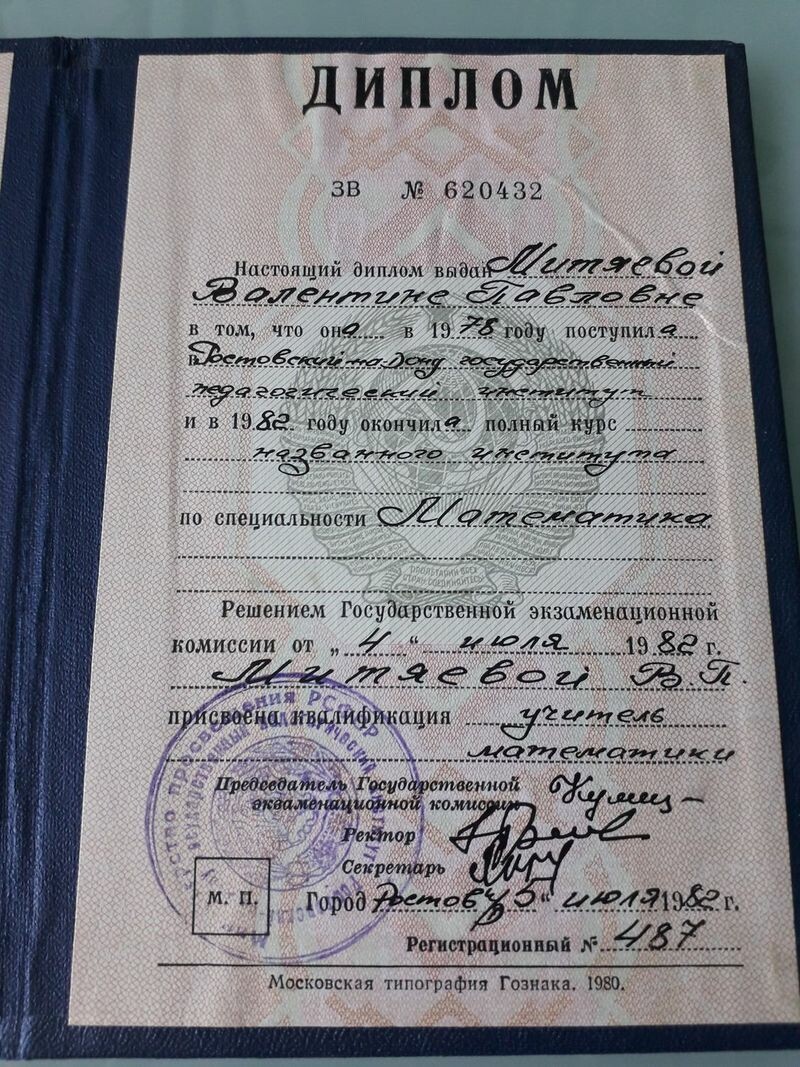 ДИПЛОМ
ЗВ № 620432
Настоящий диплом выдан Митяевой
Валентине Павловне
в том, что она в 1978 году поступила
в Ростовский-на-Дону государственный
педагогический институт
и в 1982 году окончила полный курс
названного института
по специальности Математика
ПРОЛЕТАРИИ ВСЕХ
СТРАН СОЕДИНЯЙТЕСЬ
Решением Государственной экзаменационной
комиссии от „4“ июля 1982 г.
Митяевой В.П.
присвоена квалификация учитель
математики
Председатель Государственной
экзаменационной комиссии
Ректор
Секретарь
М. П.
Город Ростов „5“ июля 1982 г.
Регистрационный № 487
Московская типография Гознака. 1980.
просвещения РСФСР